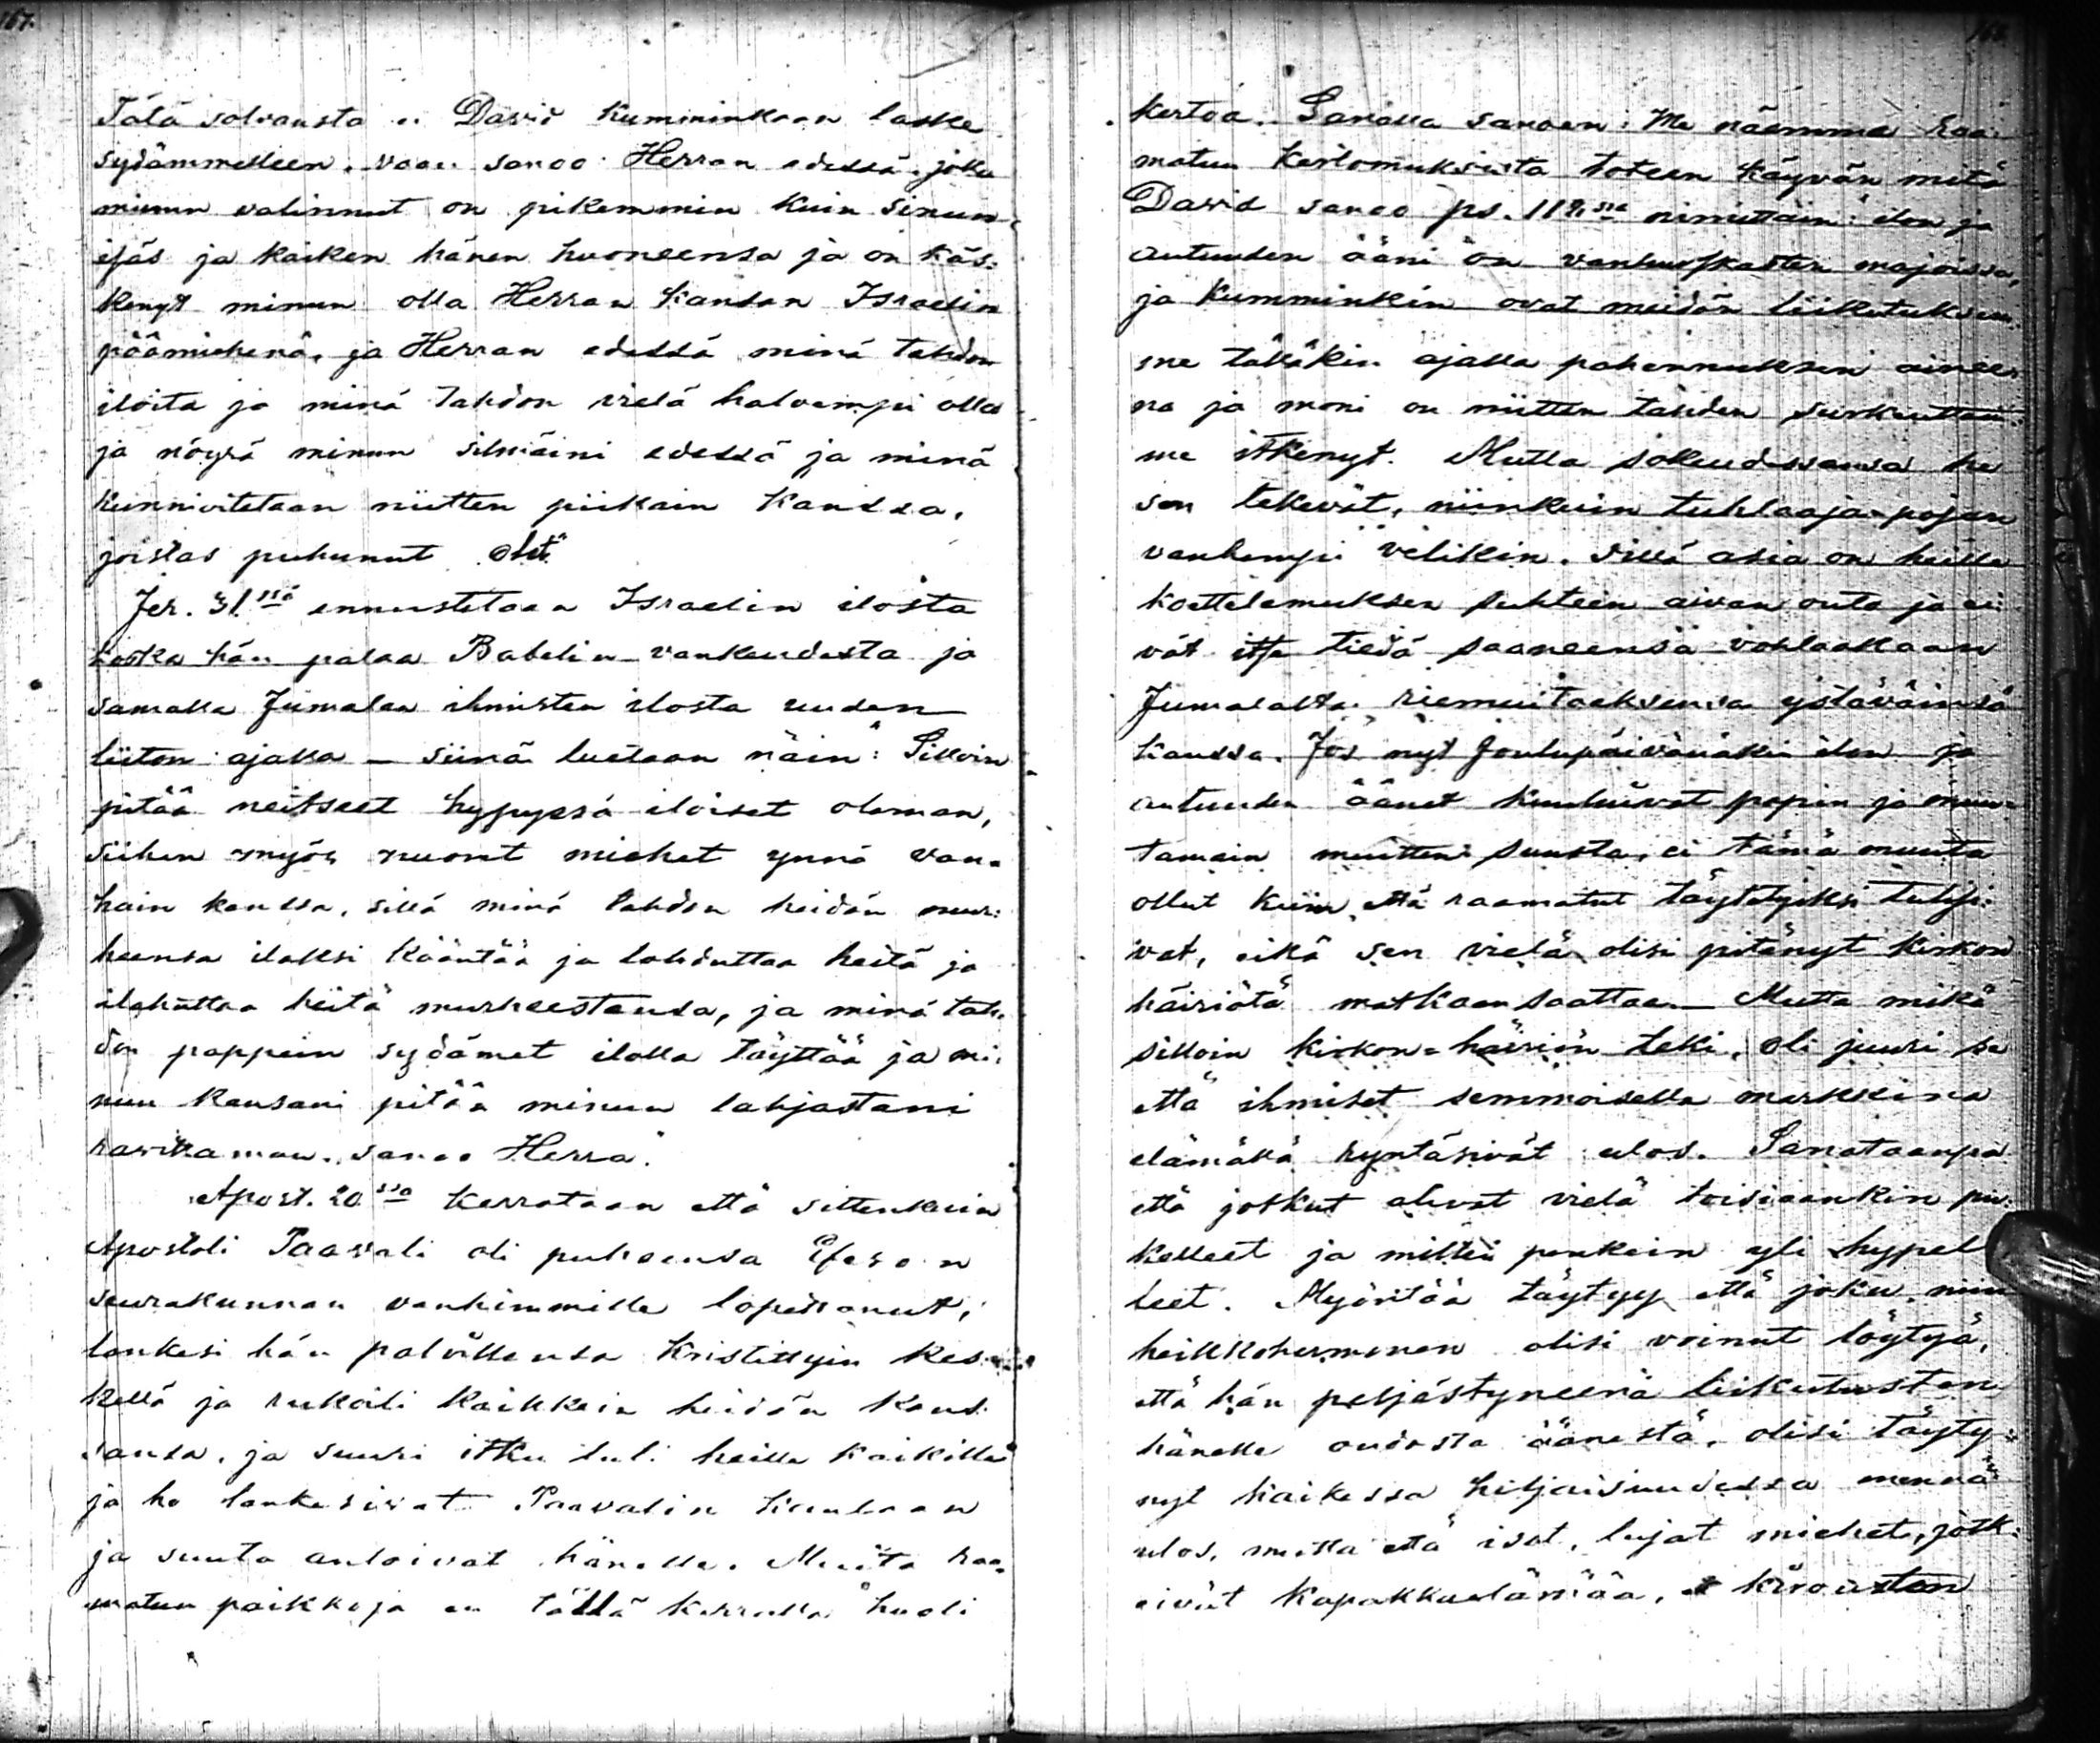 167.
Tätä solvausta ei David kumminkaan laske
sydämmelleen, vaan sanoo: Herran edessä, joka
minun valinnut on pikemmin kuin sinun
isäs ja kaiken hänen huoneensa ja on käs-
kenyt minun olla Herran kansan Israelin
päämiehenä, ja Herran edessä minä tahdon
iloita ja minä tahdon vielä halvempi olla
ja nöyrä minun silmäini edessä ja minä
kunnioitetaan niitten piikain kanssa,
joistas puhunut olet"
Jer. 31ssä ennustetaan Israelin ilosta
koska hän palaa Babelin vankeudesta ja
samalla Jumalan ihmisten ilosta uuden
liiton ajalla — siinä luetaan näin: "Silloin
pitää neitseet hypyssä iloiset oleman,
siihen myös nuoret miehet ynnä van-
hain kanssa, sillä minä tahdon heidän mur-
heensa iloksi kääntää ja lohduttaa heitä ja
ilahuttaa heitä murheestansa, ja minä tah-
don pappein sydämet ilolla täyttää ja mi-
nun kansani pitää minun lahjastani
ravittaman, sanoo Herra."
Apost. 20ssa kerrotaan että sittenkuin
Apostoli Paavali oli puheensa Efeson
seurakunnan vanhimmille lopettanut,
lankesi hän polvillensa Kristittyin kes-
kellä ja rukoili kaikkein heidän kans-
sansa, ja suuri itku tuli heille kaikille
ja he lankesivat Paavalin kaulaan
ja suuta antoivat hänelle. Muita raa-
matun paikkoja en tällä kerralla huoli
168.
kertoa. Sanalla sanoen: Me näemme Raa-
matun kertomuksista toteen käyvän mitä
David sanoo ps. 118ssa nimittäin: "ilon ja
autuuden ääni on vanhurskasten majoissa,
ja kumminkin ovat meidän liikutuksem-
me tälläkin ajalla pahennuksen ainee-
na ja moni on niitten tähden surkuttam-
me itkenyt. Mutta sokeudessansa he
sen tekevät, niinkuin tuhlaaja-pojan
vanhempi velikin. Sillä asia on heille
koettelemuksen suhteen aivan outo ja ei-
vät itse tiedä saaneensa vohlaakaan
Jumalalta riemuitaeksensa ystäväinsä
kanssa. Jos nyt Joulupäivänäkin ilon ja
autuuden äänet kuuluivat papin ja muu-
tamain muitten suusta, ei tämä muuta
ollut kuin, että raamatut täytetyiksi tulisi-
vat, eikä sen vielä olisi pitänyt kirkon
häiriötä matkaan saattaa. — Mutta mikä
silloin kirkon-häiriön teki, oli juuri se
että ihmiset semmoisella markkina
elämällä ryntäsivät ulos. Sanotaanpa
että jotkut olivat vielä toisiaankin pu-
kelleet ja miltei penkein yli hypel-
leet. Myöntää täytyy että joku niin
heikkohermonen olisi voinut löytyä,
että hän peljästyneenä liikutusten
hänelle oudosta äänestä, olisi täyty-
nyt kaikessa hiljaisuudessa mennä
ulos, mutta että isot, lujat miehet, jotk-
eivät kapakkaelämää, kirousten